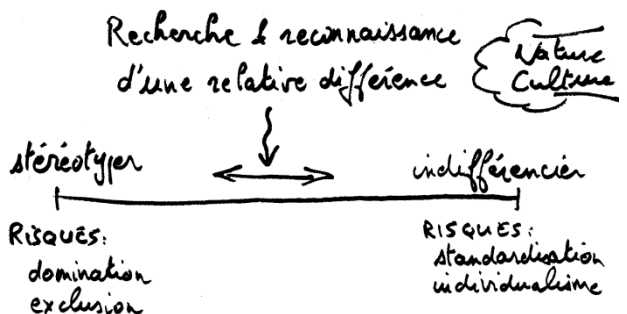 Recherche & reconnaissance
d'une relative différence
Nature
Culture
stéréotyper
indifférencier
RISQUES:
domination
exclusion
RISQUES:
standardisation
individualisme